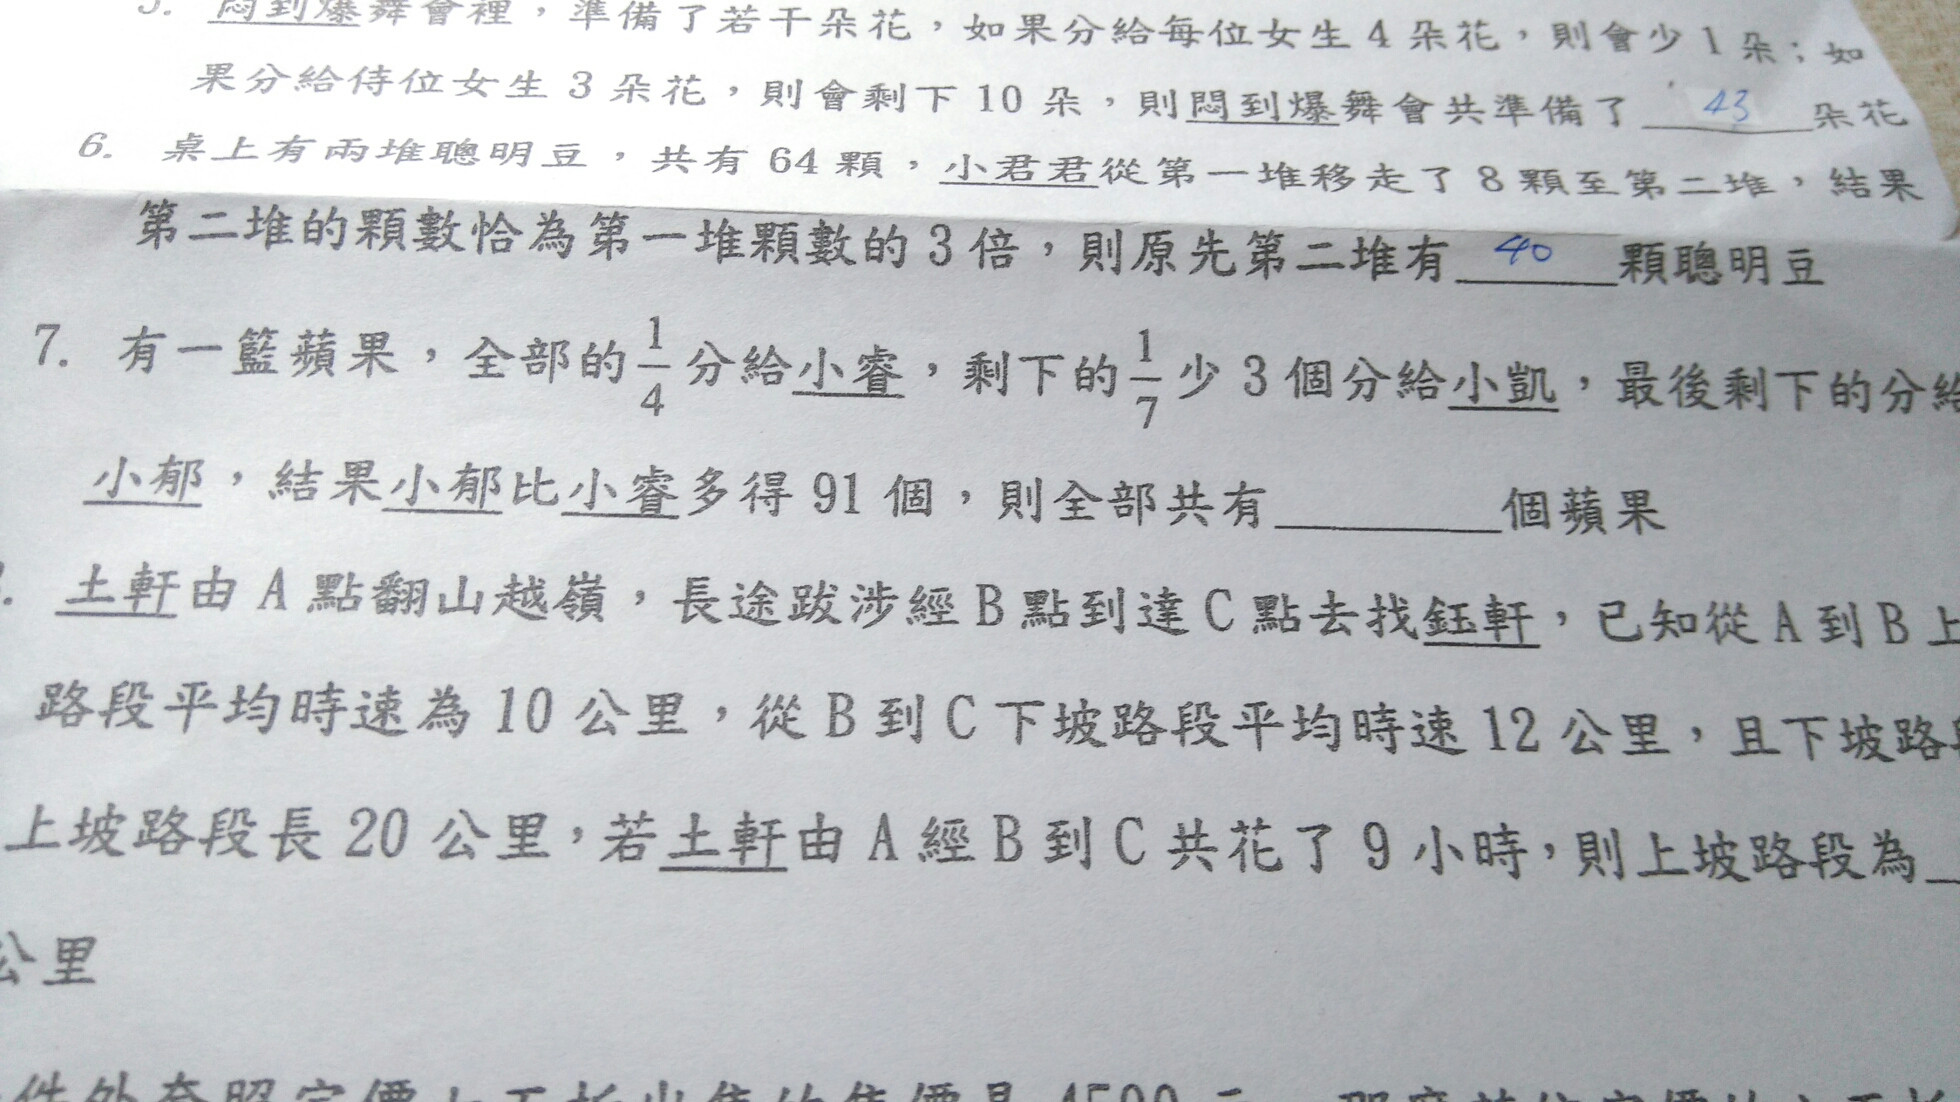 5. 悶到爆舞會裡，準備了若干朵花，如果分給每位女生 4 朵花，則會少 1 朵；如
果分給侍位女生 3 朵花，則會剩下 10 朵，則悶到爆舞會共準備了 43 朵花
6. 桌上有兩堆聰明豆，共有 64 顆，小君君從第一堆移走了 8 顆至第二堆，結果
第二堆的顆數恰為第一堆顆數的 3 倍，則原先第二堆有 40 顆聰明豆
7. 有一籃蘋果，全部的 1/4 分給小睿，剩下的 1/7 少 3 個分給小凱，最後剩下的分給
小郁，結果小郁比小睿多得 91 個，則全部共有______個蘋果
. 土軒由 A 點翻山越嶺，長途跋涉經 B 點到達 C 點去找鈺軒，已知從 A 到 B 上
路段平均時速為 10 公里，從 B 到 C 下坡路段平均時速 12 公里，且下坡路
上坡路段長 20 公里，若土軒由 A 經 B 到 C 共花了 9 小時，則上坡路段為_
公里